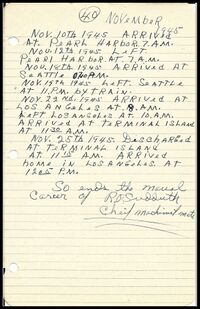 40 NOVEMBER
NOV. 10TH 1945 ARRIVED
AT PEARL HARBOR 7 A.M.
NOV. 12TH 1945 LEFT
PEARL HARBOR AT 7 A.M.
NOV. 18TH 1945 ARRIVED AT
SEATTLE P.M.
NOV. 19TH 1945 LEFT SEATTLE
AT 11 P.M. BY TRAIN.
NOV. 22ND 1945 ARRIVED AT
LOS ANGELES AT 8. A.M.
LEFT LOS ANGELES AT 10. A.M.
ARRIVED AT TERMINAL ISLAND
AT 11:30 A.M.
NOV. 25TH 1945 DISCHARGED
AT TERMINAL ISLAND
AT 11:15 A.M. ARRIVED
HOME IN LOS ANGELES AT
12:05 P.M.
So ends the naval
Career of R.O. Sudduth
Chief machinist mate